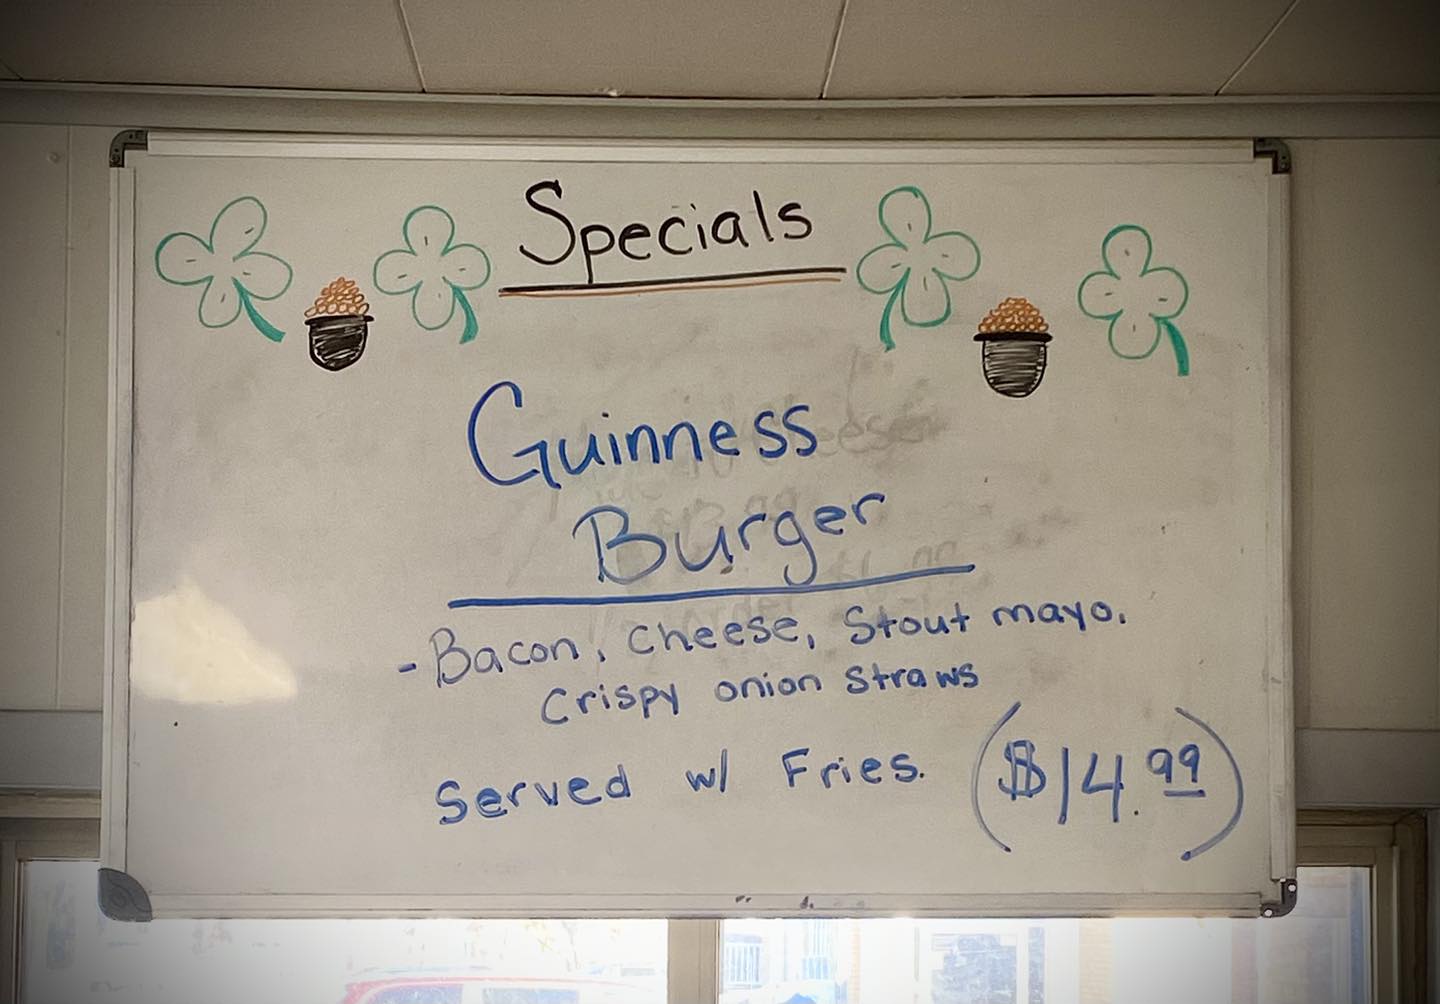 Specials
Guinness
Burger
- Bacon, cheese, Stout mayo.
Crispy onion straws
Served w/ Fries. ($14.99)